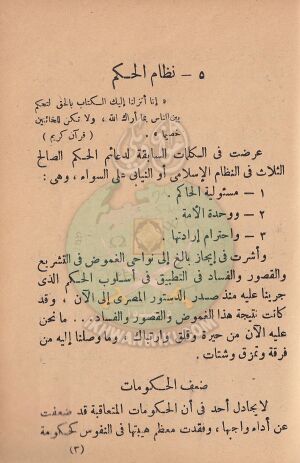 ٥ – نظام الحكم
« إنا أنزلنا إليك الكتاب بالحق لتحكم
بين الناس بما أراك الله ، ولا تكن للخائنين
خصيما » . ( قرآن كريم )
عرضت فى الكلمات السابقة لدعائم الحكم الصالح
الثلاث فى النظام الإسلامى أو النيابى على السواء ، وهى :
١ – مسئولية الحاكم .
٢ – ووحدة الأمة .
٣ – واحترام إرادتها .
وأشرت فى إيجاز بالغ إلى نواحى الغموض فى التشريع
والقصور والفساد فى التطبيق فى أسلوب الحكم الذى
جرينا عليه منذ صدر الدستور المصرى إلى الآن ، وقد
كانت نتيجة هذا الغموض والقصور والفساد... ما نحن
عليه الآن من حيرة وقلق وارتباك ، وما وصلنا إليه من
فرقة وتمزق وشتات .
ضعف الحكومات
لا يجادل أحد فى أن الحكومات المتعاقبة قد ضعفت
عن أداء واجبها ، وفقدت معظم هيبتها فى النفوس كحكومة
(٣)